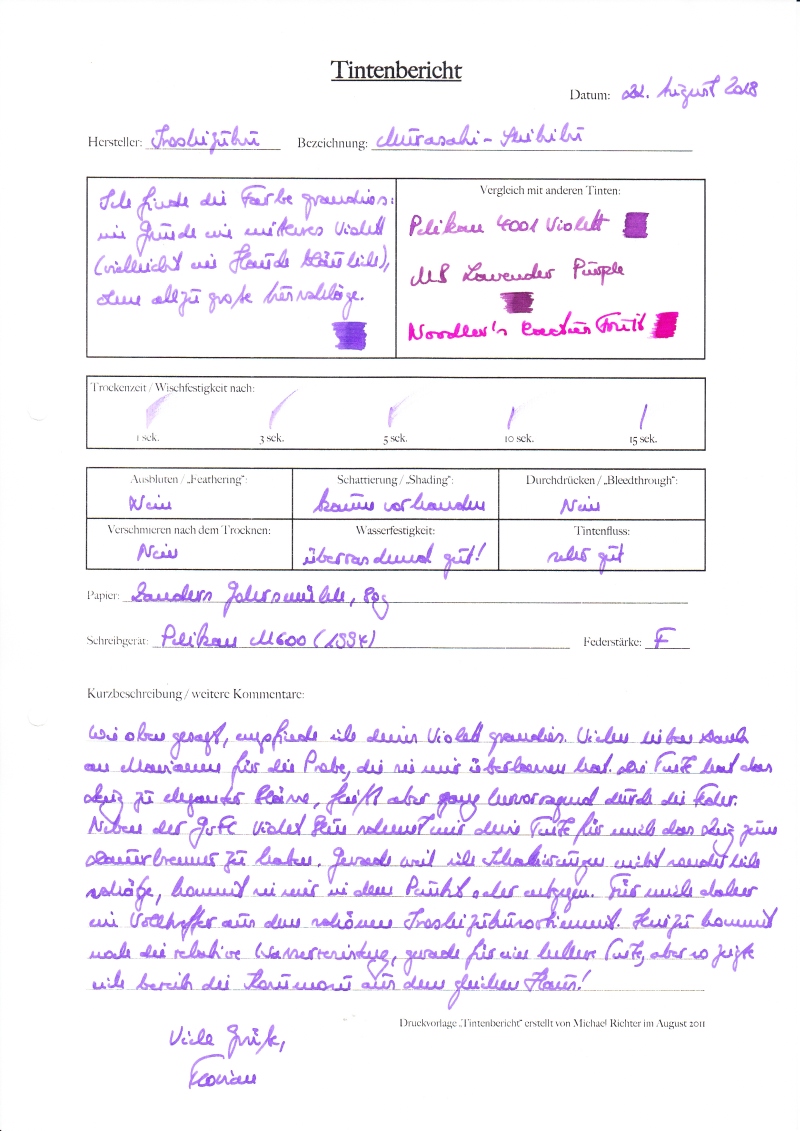 Tintenbericht
Datum: 22. August 2018
Hersteller: Iroshizuku Bezeichnung: Murasaki-Shikibu
Ich finde die Farbe grandios:
im Grunde ein mittleres Violett
(vielleicht ein Hauch bläulich),
ohne allzu große Umschläge.
Vergleich mit anderen Tinten:
Pelikan 4001 Violett
MB Lavender Purple
Noodler's Cactus Fruit
Trockenzeit / Wischfestigkeit nach:
1 sek. 3 sek. 5 sek. 10 sek. 15 sek.
Ausbluten / „Feathering“: Schattierung / „Shading“: Durchdrücken / „Bleedthrough“:
Nein kaum vorhanden Nein
Verschmieren nach dem Trocknen: Wasserfestigkeit: Tintenfluss:
Nein überraschend gut! sehr gut
Papier: Landers Gohrsmühle, 80g
Schreibgerät: Pelikan M600 (1997) Federstärke: F
Kurzbeschreibung / weitere Kommentare:
Wie oben gesagt, empfinde ich dieses Violett grandios. Vielen lieben Dank
an Marianne für die Probe, die sie mir überlassen hat. Die Tinte hat das
Zeug zu eleganter Bläue, fließt aber ganz hervorragend durch die Feder.
Neben der GvFC Violet Blue scheint mir diese Tinte für mich das Zeug zum
Dauerbrenner zu haben. Gerade weil ich Schattierungen nicht sonderlich
schätze, kommt sie mir in dem Punkt sehr entgegen. Für mich daher
ein Volltreffer aus dem schönen Iroshizukusortiment. Hinzu kommt
noch die relative Wasserresistenz, gerade für eine hellere Tinte, aber so zeigte
sich bereits die Kosumosu aus dem gleichen Haus!
Druckvorlage „Tintenbericht“ erstellt von Michael Richter im August 2011
Viele Grüße,
Florian